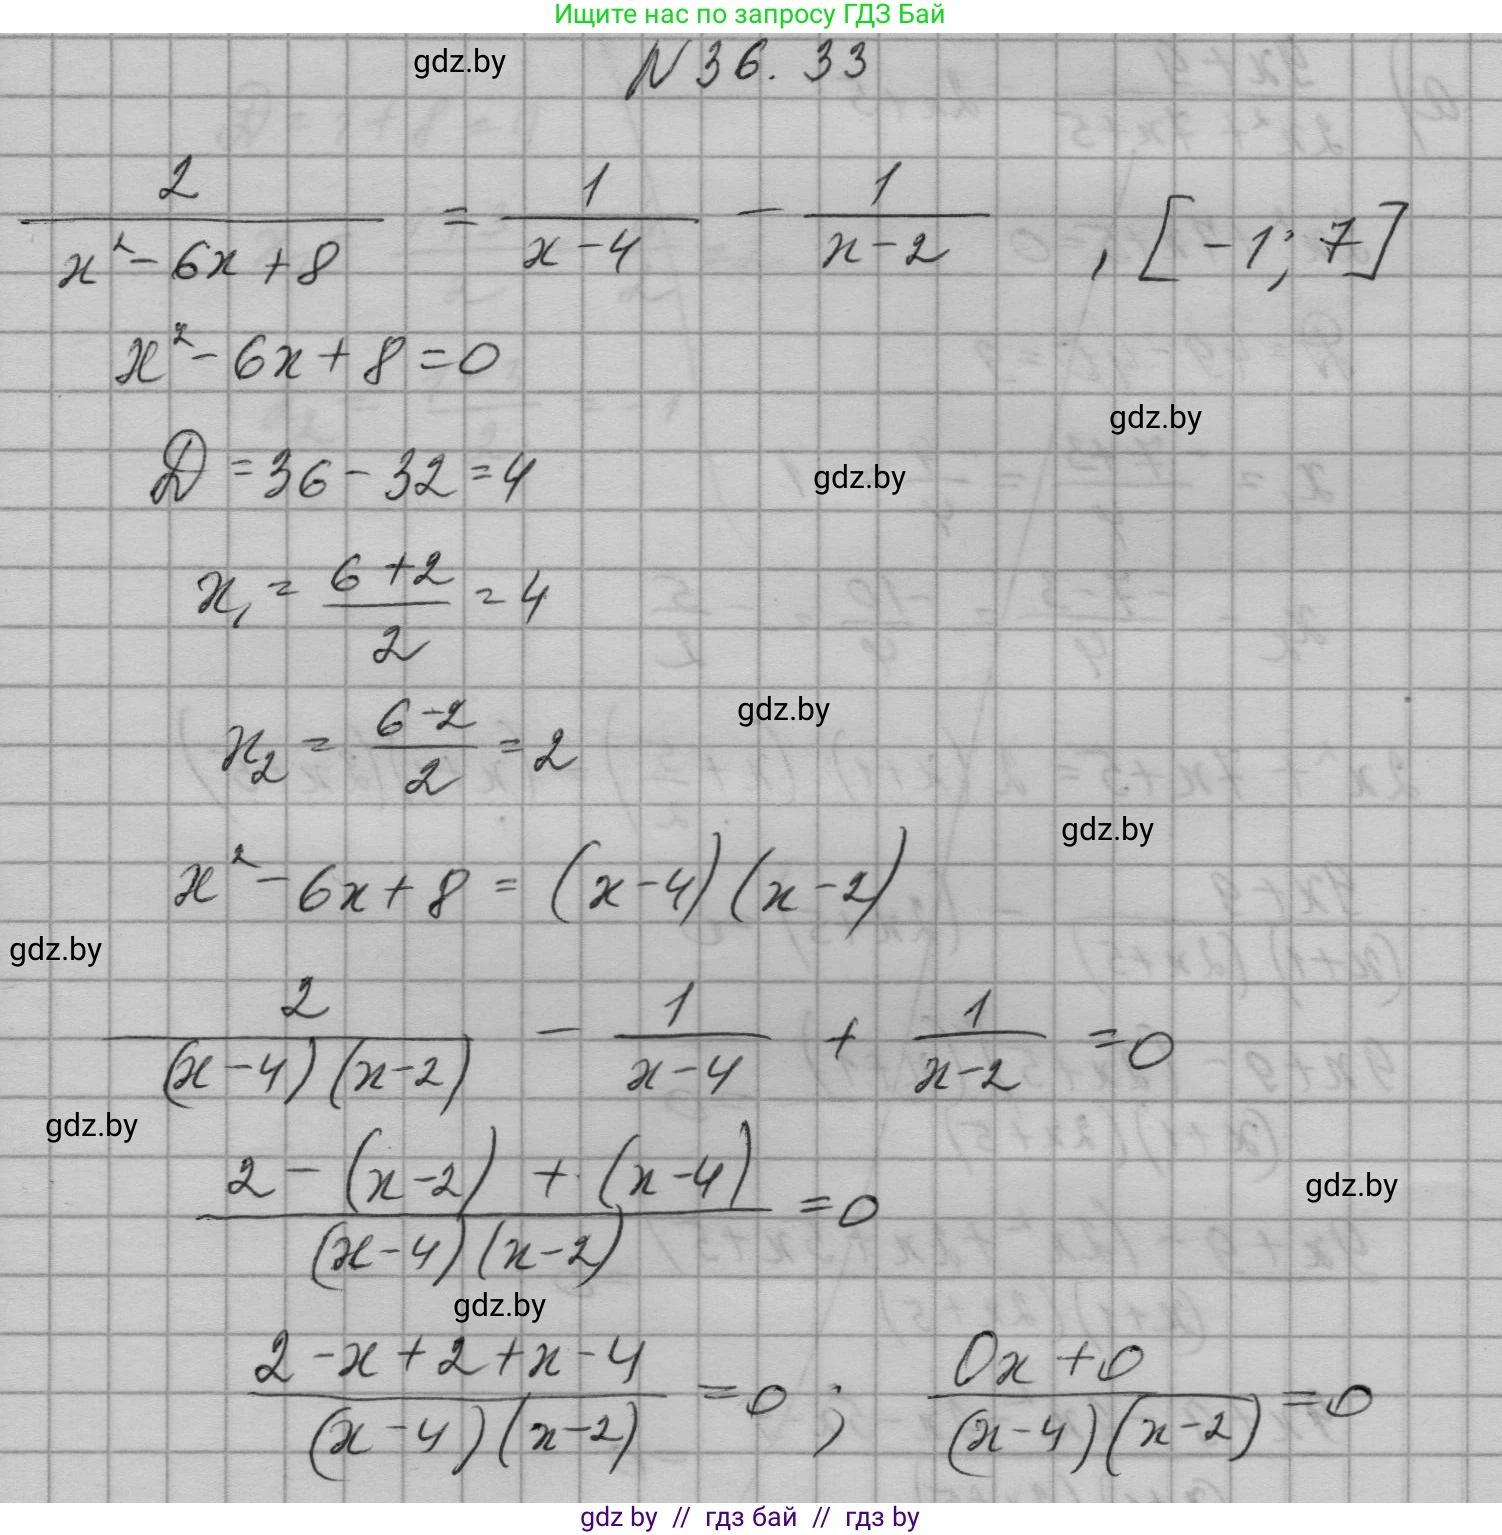 Ищите нас по запросу ГДЗ Бай
gdz.by
N 36. 33
2 / (x² - 6x + 8) = 1 / (x - 4) - 1 / (x - 2) , [-1; 7]
x² - 6x + 8 = 0
gdz.by
Д = 36 - 32 = 4
gdz.by
x₁ = (6 + 2) / 2 = 4
gdz.by
x₂ = (6 - 2) / 2 = 2
gdz.by
x² - 6x + 8 = (x - 4) (x - 2)
gdz.by
2 / ((x - 4) (x - 2)) - 1 / (x - 4) + 1 / (x - 2) = 0
gdz.by
(2 - (x - 2) + (x - 4)) / ((x - 4) (x - 2)) = 0
gdz.by
gdz.by
(2 - x + 2 + x - 4) / ((x - 4) (x - 2)) = 0 ; (0x + 0) / ((x - 4) (x - 2)) = 0
gdz by // гдз бай // гдз by